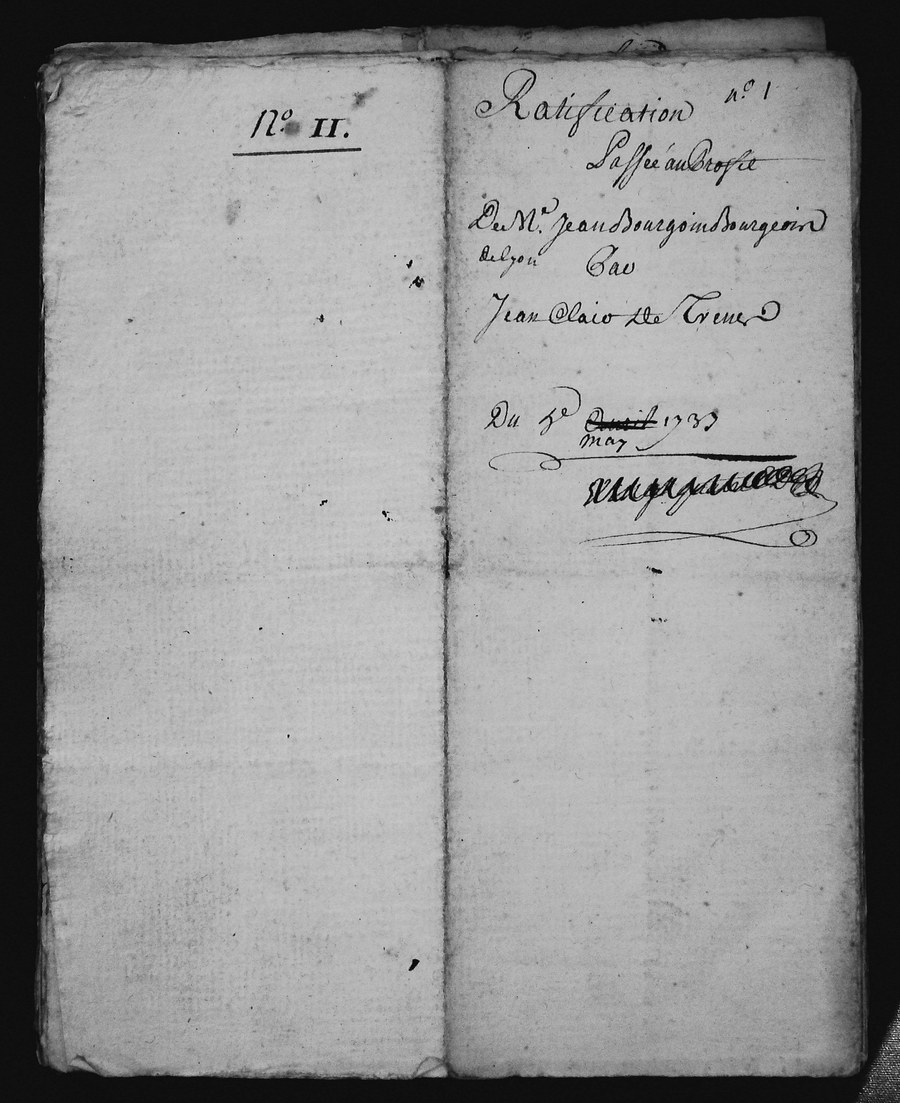 No. II.
no 1
Ratification
Passée au Profit
De Mr. Jean Bourgoin Bourgeois
de Lyon
Par
Jean Clair De Treue
Du 4e Avril 1733
may